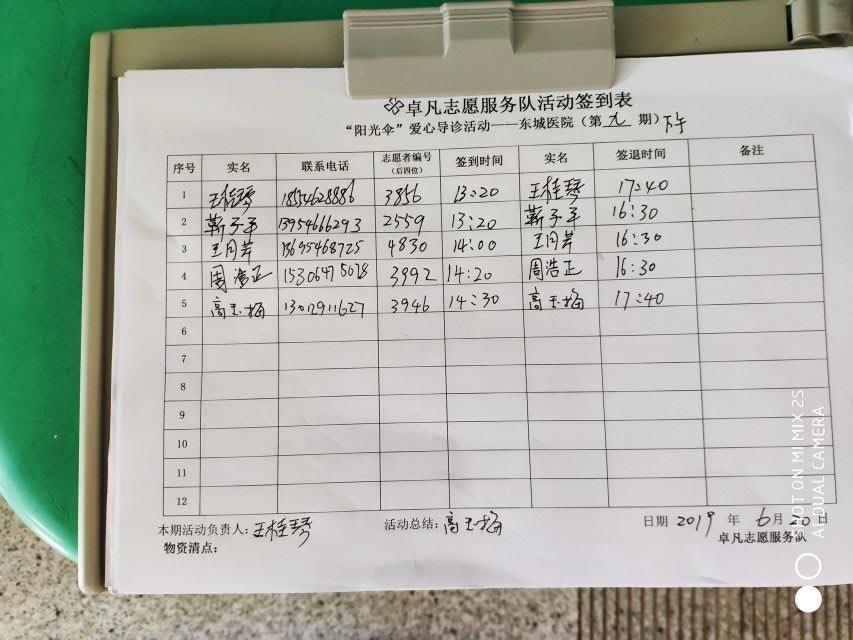 卓凡志愿服务队活动签到表
“阳光伞”爱心导诊活动——东城医院（第 九 期）下午
序号 实名 联系电话 志愿者编号（后四位） 签到时间 实名 签退时间 备注
1 王桂琴 18554628886 3856 13:20 王桂琴 17:40
2 靳子平 13954666293 2559 13:20 靳子平 16:30
3 王月芹 13695468725 4830 14:00 王月芹 16:30
4 周浩正 15306475028 3992 14:20 周浩正 16:30
5 高玉梅 13012911627 3946 14:30 高玉梅 17:40
6
7
8
9
10
11
12
本期活动负责人：王桂琴 活动总结：高玉梅 日期 2019 年 6月 20日
物资清点： 卓凡志愿服务队
SHOT ON MI MIX 2S
AI DUAL CAMERA